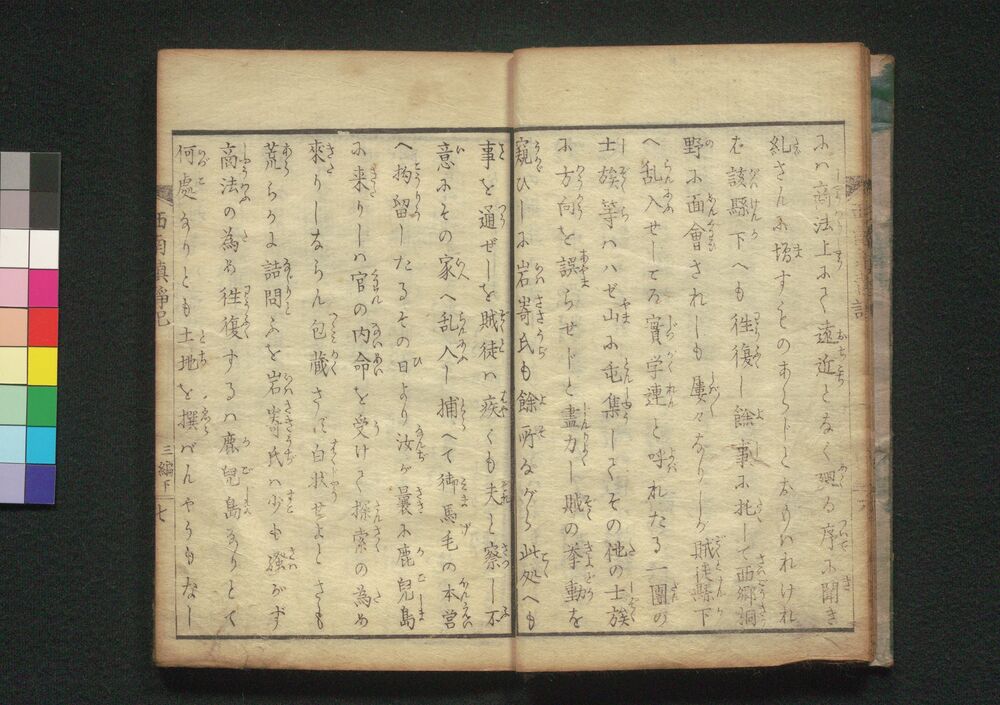 にハ商法上にて遠近となく廻る序に聞き
糺さんに増すものあらじとおもハれけれ
ば該縣下へも徃復し餘事に托して西郷桐
野に面會されしも屢々なりしが賊徒縣下
へ乱入せしころ實学連と呼れたる一團の
士族等ハハゼ山に屯集してその他の士族
に方向を誤らせじと盡力し賊の挙動を
窺ひしに岩嵜氏も餘所ながら此処へも
事を通ぜしを賊徒ハ疾くも夫と察し不
意にその家へ乱入し捕へて御馬毛の本営
へ拘留したるその日より汝が曩に鹿児島
に来りしハ官の内命を受けて探索の為め
来りしならん包蔵さず白状せよとさも
荒らかに詰問ふを岩嵜氏ハ少も騒がず
商法の為め徃復するハ鹿児島なりとて
何處なりとも土地を撰バんやうもなし
西南鎮静記
三編下
七